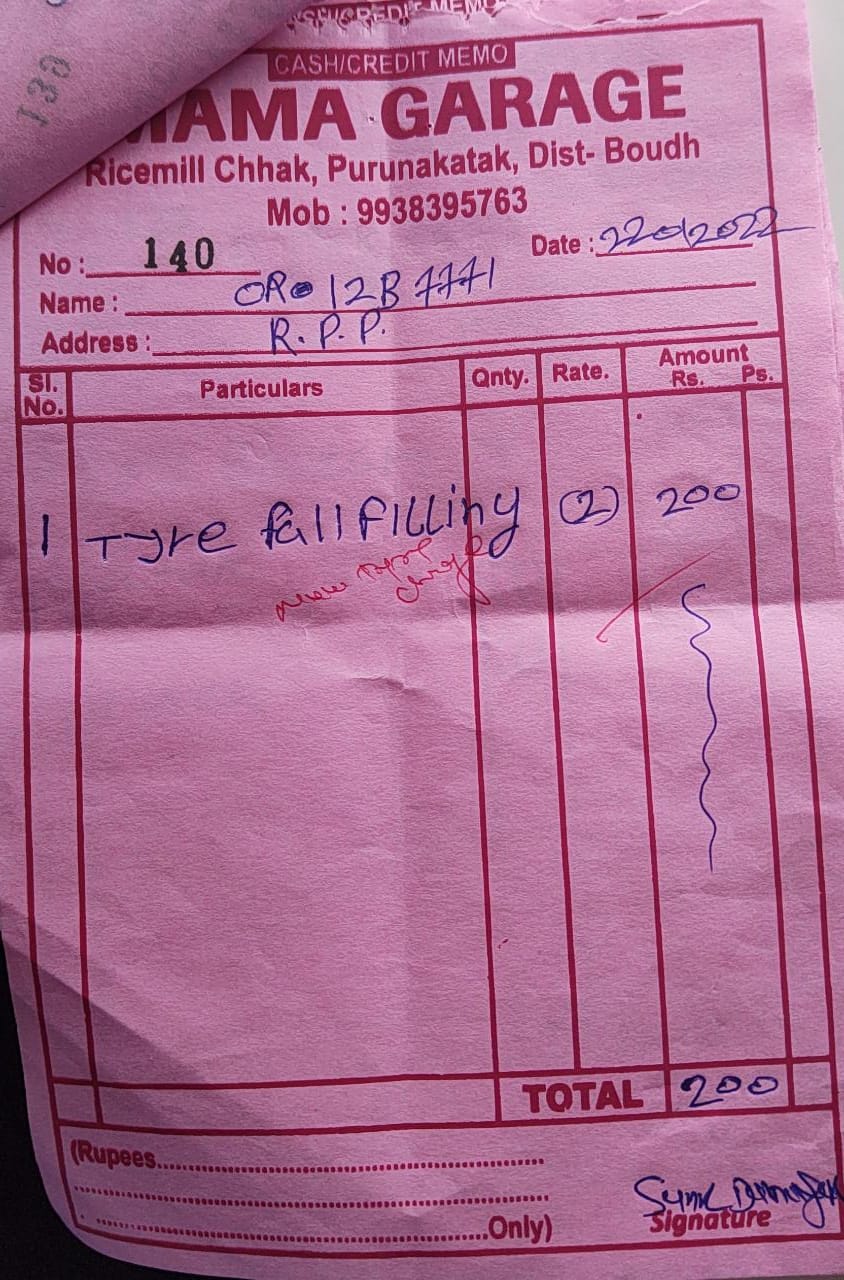 CASH/CREDIT MEMO
MAMA GARAGE
Ricemill Chhak, Purunakatak, Dist- Boudh
Mob : 9938395763
No : 140
Date :
Name : OR 12B 7771
Address : R.P.P.
Sl. No. Particulars Qnty. Rate. Amount Rs. Ps.
1 Tyre fallfilling (2) 200
TOTAL 200
(Rupees
Only)
Signature